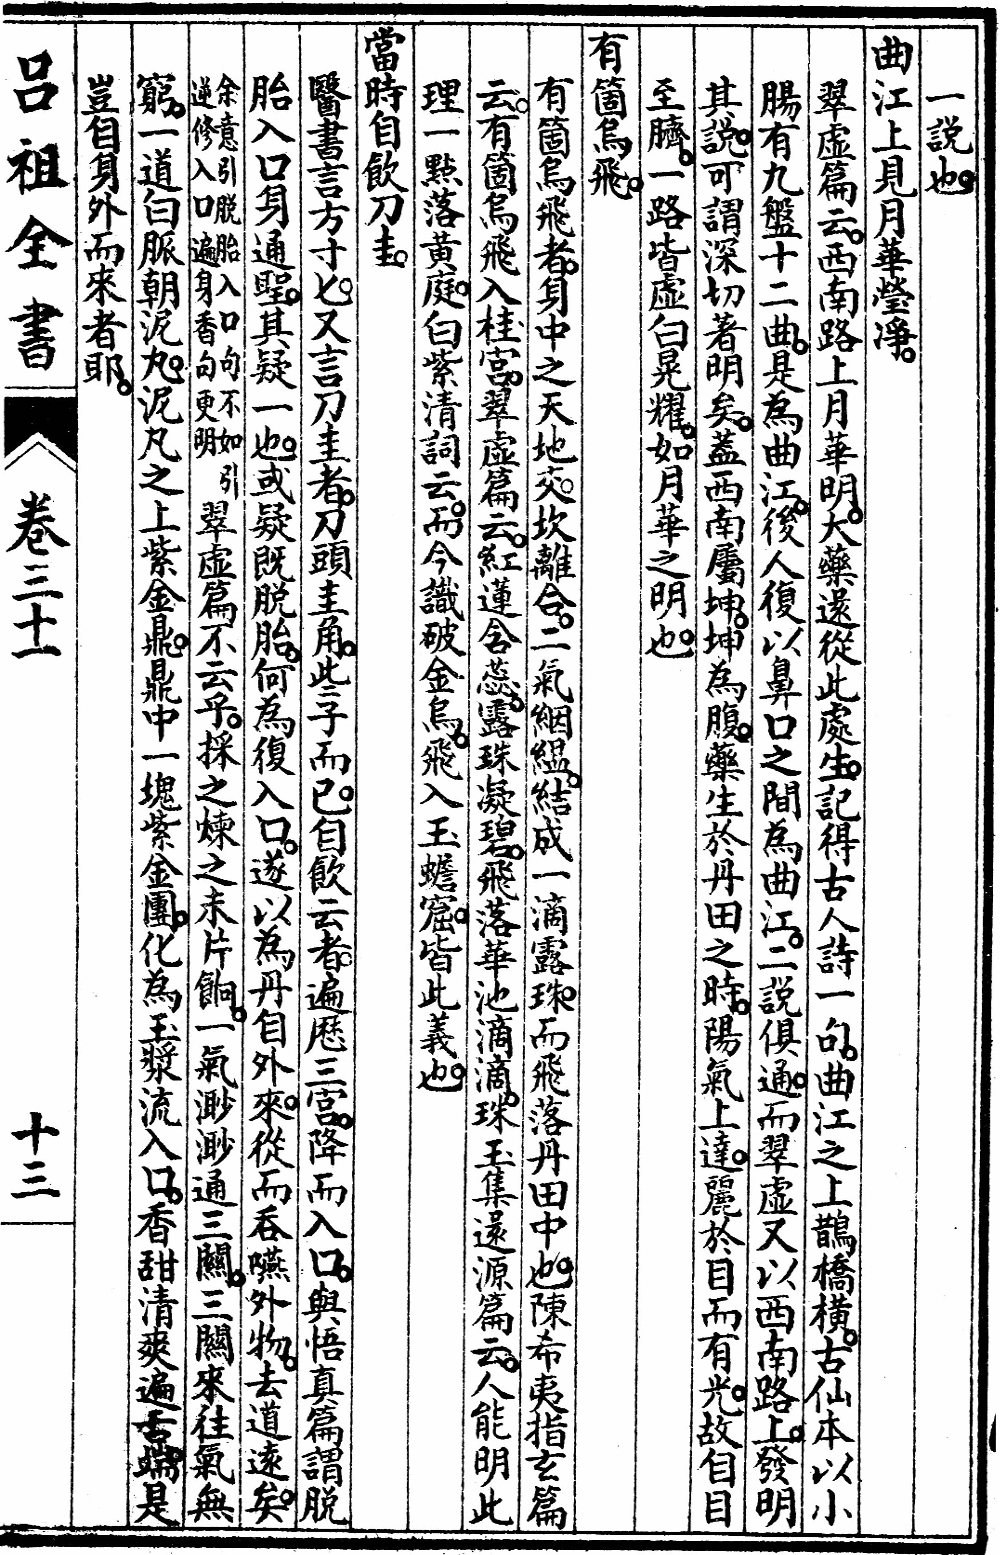 一説也。
曲江上見月華瑩凈。
翠虛篇云。西南路上月華明。大藥還從此處生。記得古人詩一句。曲江之上鵲橋橫。古仙本以小
腸有九盤十二曲。是為曲江。後人復以鼻口之間為曲江。二説俱通。而翠虛又以西南路上。發明
其説。可謂深切著明矣。蓋西南屬坤。坤為腹。藥生於丹田之時。陽氣上達。麗於目而有光。故自目
至臍。一路皆虛白晃耀。如月華之明也。
有箇烏飛。
有箇烏飛者。身中之天地交。坎離合。二氣絪縕。結成一滴露珠。而飛落丹田中也。陳希夷指玄篇
云。有箇烏飛入桂宮。翠虛篇云。紅蓮含蕊。露珠凝碧。飛落華池滴滴。珠玉集還源篇云。人能明此
理一點落黃庭。白紫清詞云。而今識破金烏。飛入玉蟾窟。皆此義也。
當時自飲刀圭。
醫書言方寸匕。又言刀圭者。刀頭圭角。此三子而已。自飲云者。遍歷三宮。降而入口。與悟真篇謂脱
胎入口身通聖。其疑一也。或疑既脱胎。何為復入口。遂以為丹自外來。從而吞嚥外物。去道遠矣。
余意引脱胎入口句不如引
逆修入口遍身香句更明
翠虛篇不云乎。採之煉之未片餉。一氣渺渺通三關。三關來往氣無
窮。一道白脈朝泥丸。泥丸之上紫金鼎。鼎中一塊紫金團。化為玉漿流入口。香甜清爽遍舌端。是
豈自身外而來者耶。
呂祖全書
卷三十一
十三